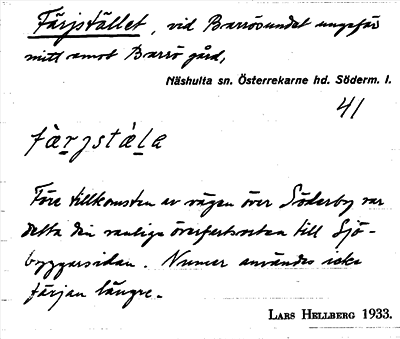 Färjstället, vid Barrösundet ungefär
mitt emot Barrö gård,
Näshulta sn. Österrekarne hd. Söderm. l.
41
fä̀rjstä́la
Före tillkomsten av vägen över Söderby var
detta den vanliga överfartsorten till Sjö-
byggarsidan. Numer användes icke
färjan längre.
LARS HELLBERG 1933.